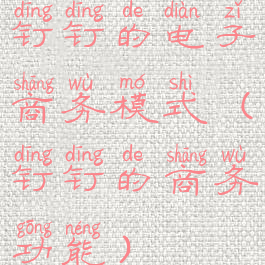 dīng dīng de diàn zǐ
钉钉的电子
shāng wù mó shì
商务模式（
dīng dīng de shāng wù
钉钉的商务
gōng néng
功能）